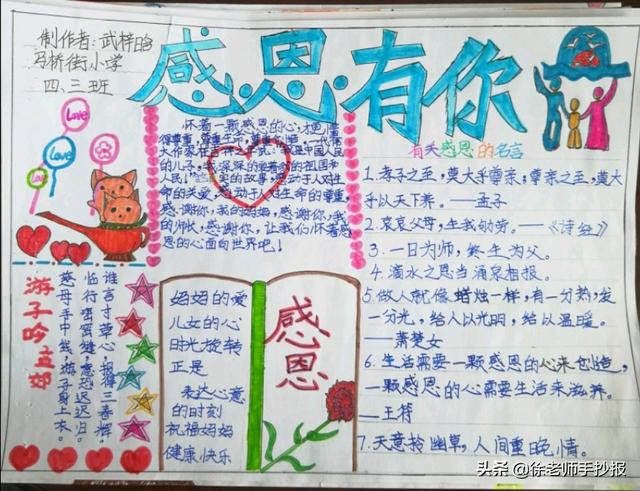 制作者:武梓晗
马桥街小学
四、三班
感·恩·有你
Love
Love
怀着一颗感恩的心,才更懂
得尊重,尊重生命,尊重创造。一代伟
人是中国人民
的儿子,我深深的爱着的祖国和
人民!
命的关爱,感动于人对生命的尊重,
感谢你,我的妈妈,感谢你,我
的师长,感谢你,让我们怀着感
恩的心面向世界吧!
有关感恩的名言
1.孝子之至,莫大乎尊亲;尊亲之至,莫大
乎以天下养。——孟子
2.哀哀父母,生我劬劳。——《诗经》
3.一日为师,终生为父。
4.滴水之恩当涌泉相报。
5.做人就像蜡烛一样,有一分热,发
一分光,给人以光明,给以温暖。
——萧楚女
6.生活需要一颗感恩的心来创造,
一颗感恩的心需要生活来滋养。
——王符
7.天意怜幽草,人间重晚情。
游子吟孟郊
慈母手中线,游子身上衣。
临行密密缝,意恐迟迟归。
谁言寸草心,报得三春晖。
妈妈的爱
儿女的心
时光旋转
正是
表达心意
的时刻
祝福妈妈
健康快乐
感恩
头条@徐老师手抄报